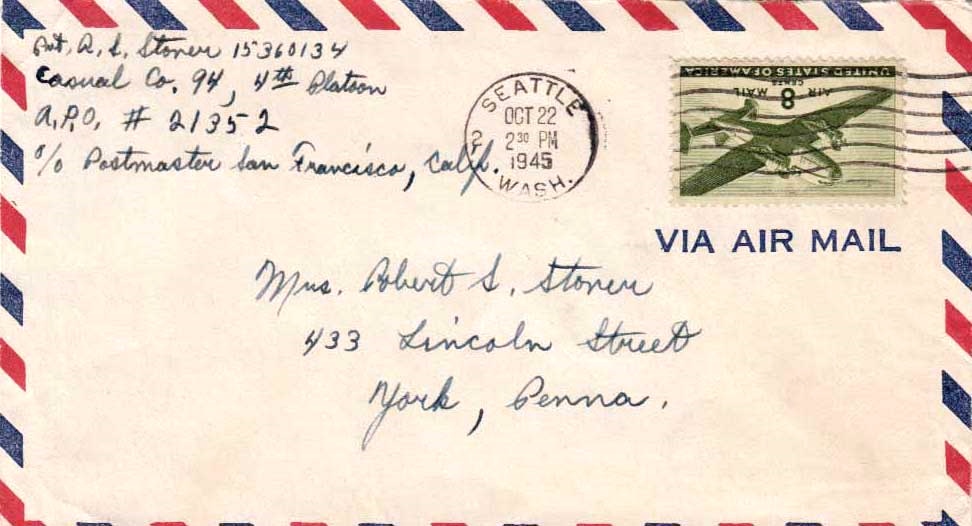 Pvt. R. S. Stoner 15360134
Casual Co. 94, 4th Platoon
A.P.O. # 21352
c/o Postmaster San Francisco, Calif.
SEATTLE
OCT 22
2 30 PM
1945
WASH.
2
UNITED STATES OF AMERICA
AIR MAIL
8
CENTS
VIA AIR MAIL
Mrs. Robert S. Stoner
433 Lincoln Street
York, Penna.